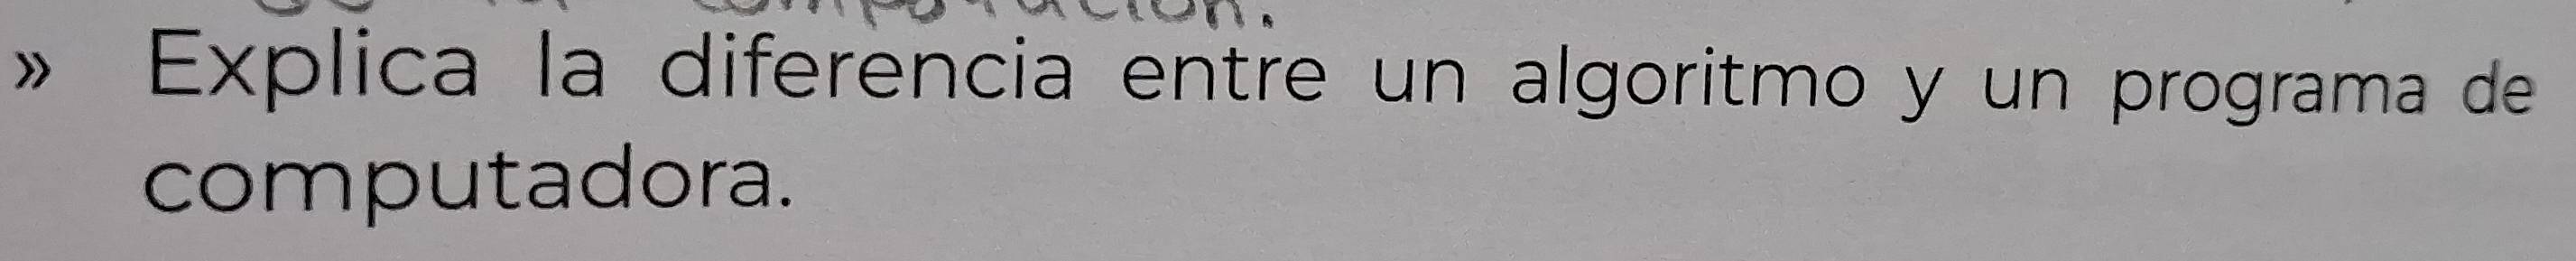 » Explica la diferencia entre un algoritmo y un programa de
computadora.